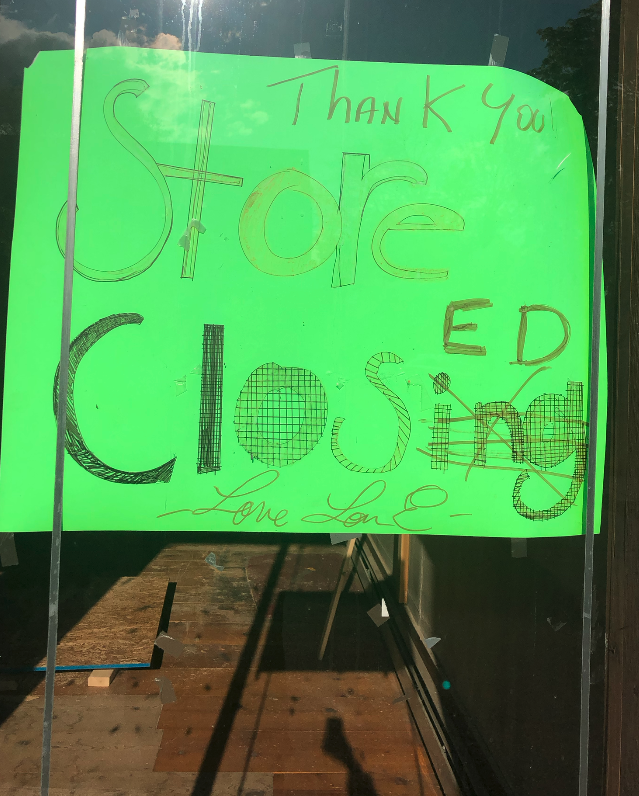 THANK YOU
Store
ED
Closing
- Love Lou E -